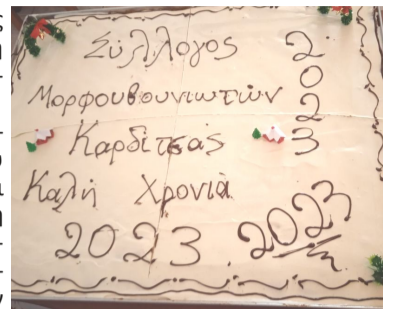 Σύλλογος
Μορφουβουνιωτών
Καρδίτσας
2
0
2
3
Καλή Χρονιά
2023 . 2023